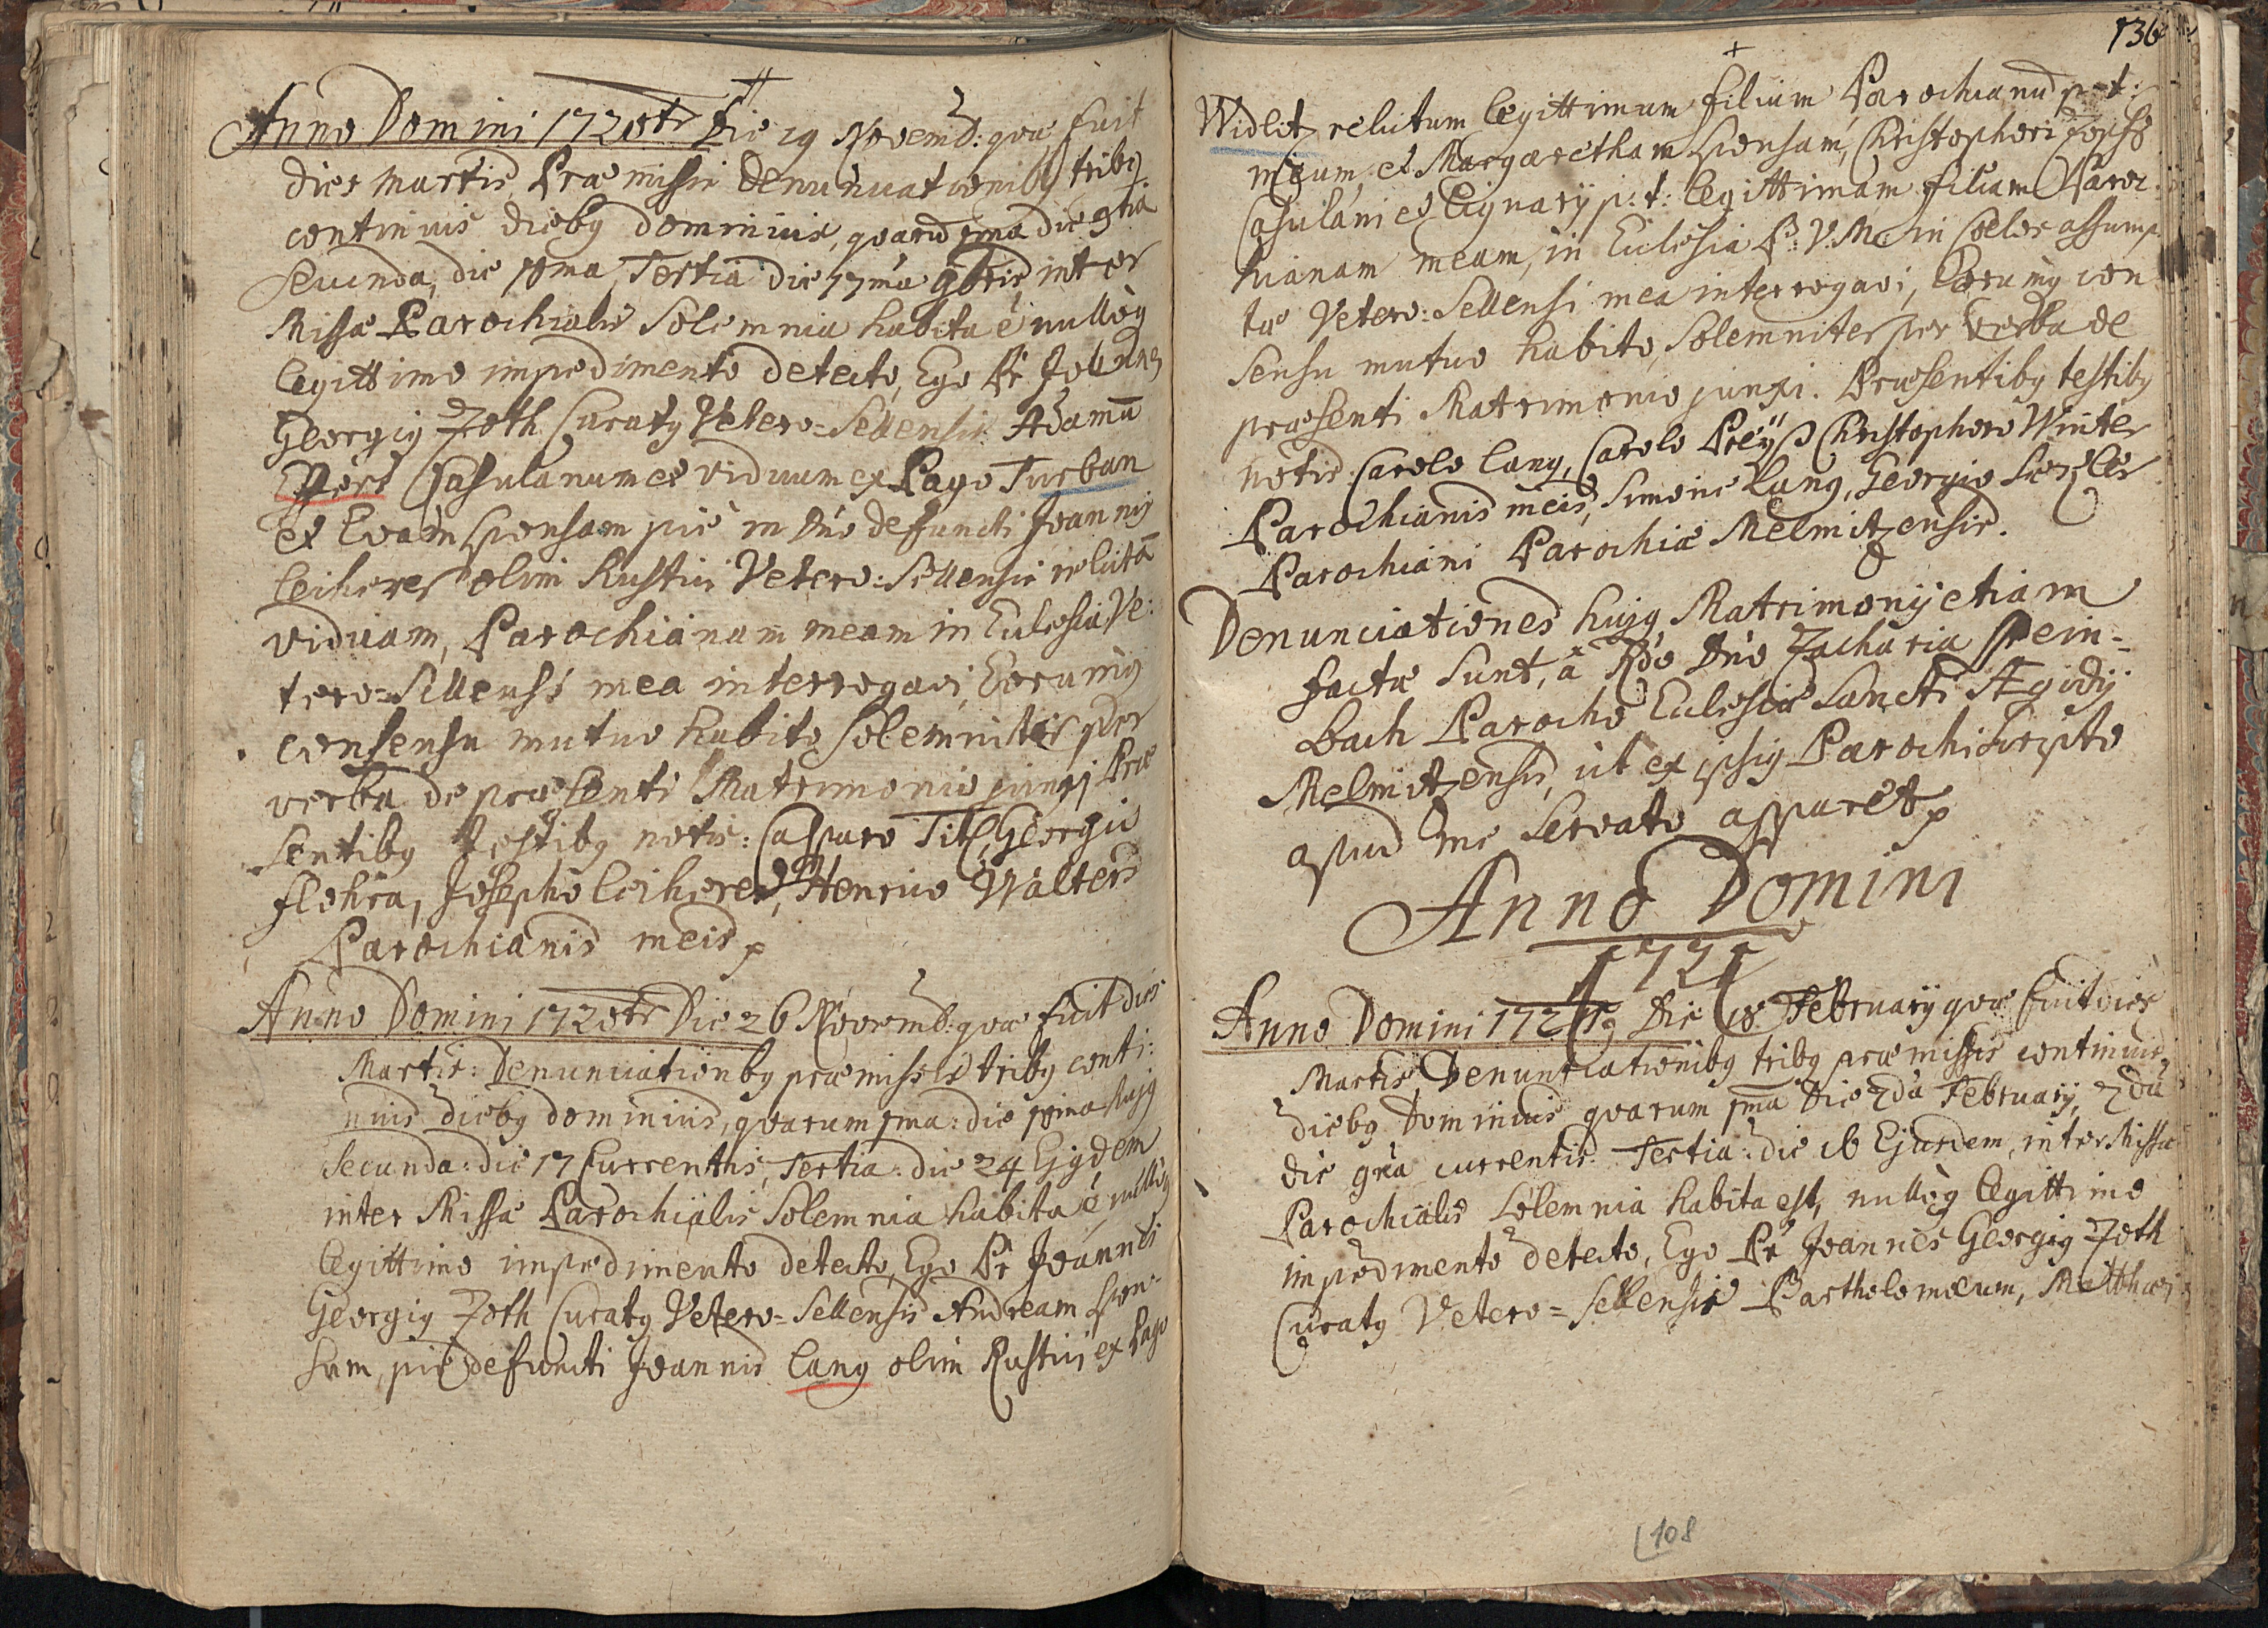 Anno Domini 1720mo Die 19 Novemb: quæ fuit
dies Martis Præmissis denunciationibg tribg
continuis diebg dominicis, quarũ 1ma die 3tia
secunda, die 10ma, Tertia die 17ma 9bris inter
Missæ Parochialis Solemnia habita ẽ nullòg
legittimo impedimento detecto, Ego Pr Joannes
Georgig Zoth Curatg Vetero=Sellensis Adamũ
Casulanum et viduum ex Pago Turban
et Evam sponsam piè in Dno defuncti Joannis
Leikeres olim Rustici Vetero=Sellensis relictã
viduam, Parochianam meam in Eccleia Ve:
tero=Sellensi mea interrogavi, Eorumg
consensu mutuo habito Solemniter per
verba de præsenti Matrimonio junxi Præ
sentibg testibg notis: Casparo Titz, Georgio
Flohra, Josepho Leikeres, Henrico Walters
Parochianis meis
Anno Domini 1720mo Die 26 Novemb: quæ fuit dies
Martis: Denunciationbg præmissis tribg conti:
nuis diebg dominicis, quarum 1ma: die 10ma hujg
Secunda: die 17 Currentis, Tertia: die 24 Ejgdem
inter Missæ Parochialis Solemnia habita ẽ nullòg
legittimo impedimento detecto, Ego Pr Joannes
Georgig Zoth Curatg Vetero=Sellensis Andream spon=
sum, piè defuncti Joannis Lang olim Rustici ex Pago
136
Widlitz relictum legittimum filium Parochianũ p: t:
meum, et Margaretham sponsam, Christopheri
Casulani et Lignarij p: t: legittimam filiam Paroc
hianam meam, in Ecclesia B: V: M: in Cœlos assump
tæ Vetero=Sellensi mea interrogavi, Eorumg con
sensu mutuo habito, Solemniter per verba de
præsenti Matrimonio junxi. Præsentibg testibg
notis: Carolo Lang, Carolo Preÿß Christophoro Winter
Parochianis meis, Simone Lang, Georgio
Parochiani Parochiæ Melmitzensis.
Denunciationes hujg Matrimonij etiam
factæ sunt, à Rdo Dno Zacharia Stein=
bach Parocho Ecclesiæ Sancti Ægidij
Melmitzensis, ut ex ipsig Parochi scripto
apud me servato apparet
Anno Domini
1721
Anno Domini 1721 Die 18 February quæ fuit dies
Martis, Denunciationibg tribg præmissis continuis
diebg Dominicis quarum 1ma Die 2da February, 2da
die 9na currentis Tertia: die 16 Ejusdem, inter Missæ
Parochialis Solemnia habita est, nullòg legittimo
impedimento detecto, Ego Pr Joannes Georgig Zoth
Curatg Vetero=Sellensis Bartholomæum, Matthæi
108